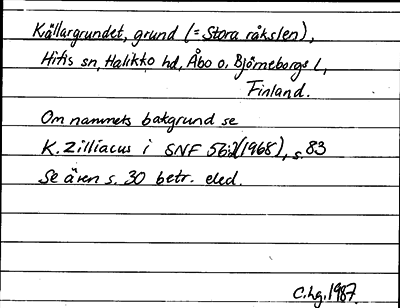 Källargrundet, grund (= Stora råkslen),
Hitis sn, Halikko hd, Åbo o. Björneborgs l,
Finland.
Om namnets bakgrund se
K. Zilliacus i SNF 56:2 (1968), s. 83
Se även s. 30 betr. eled.
C.Lg. 1987.